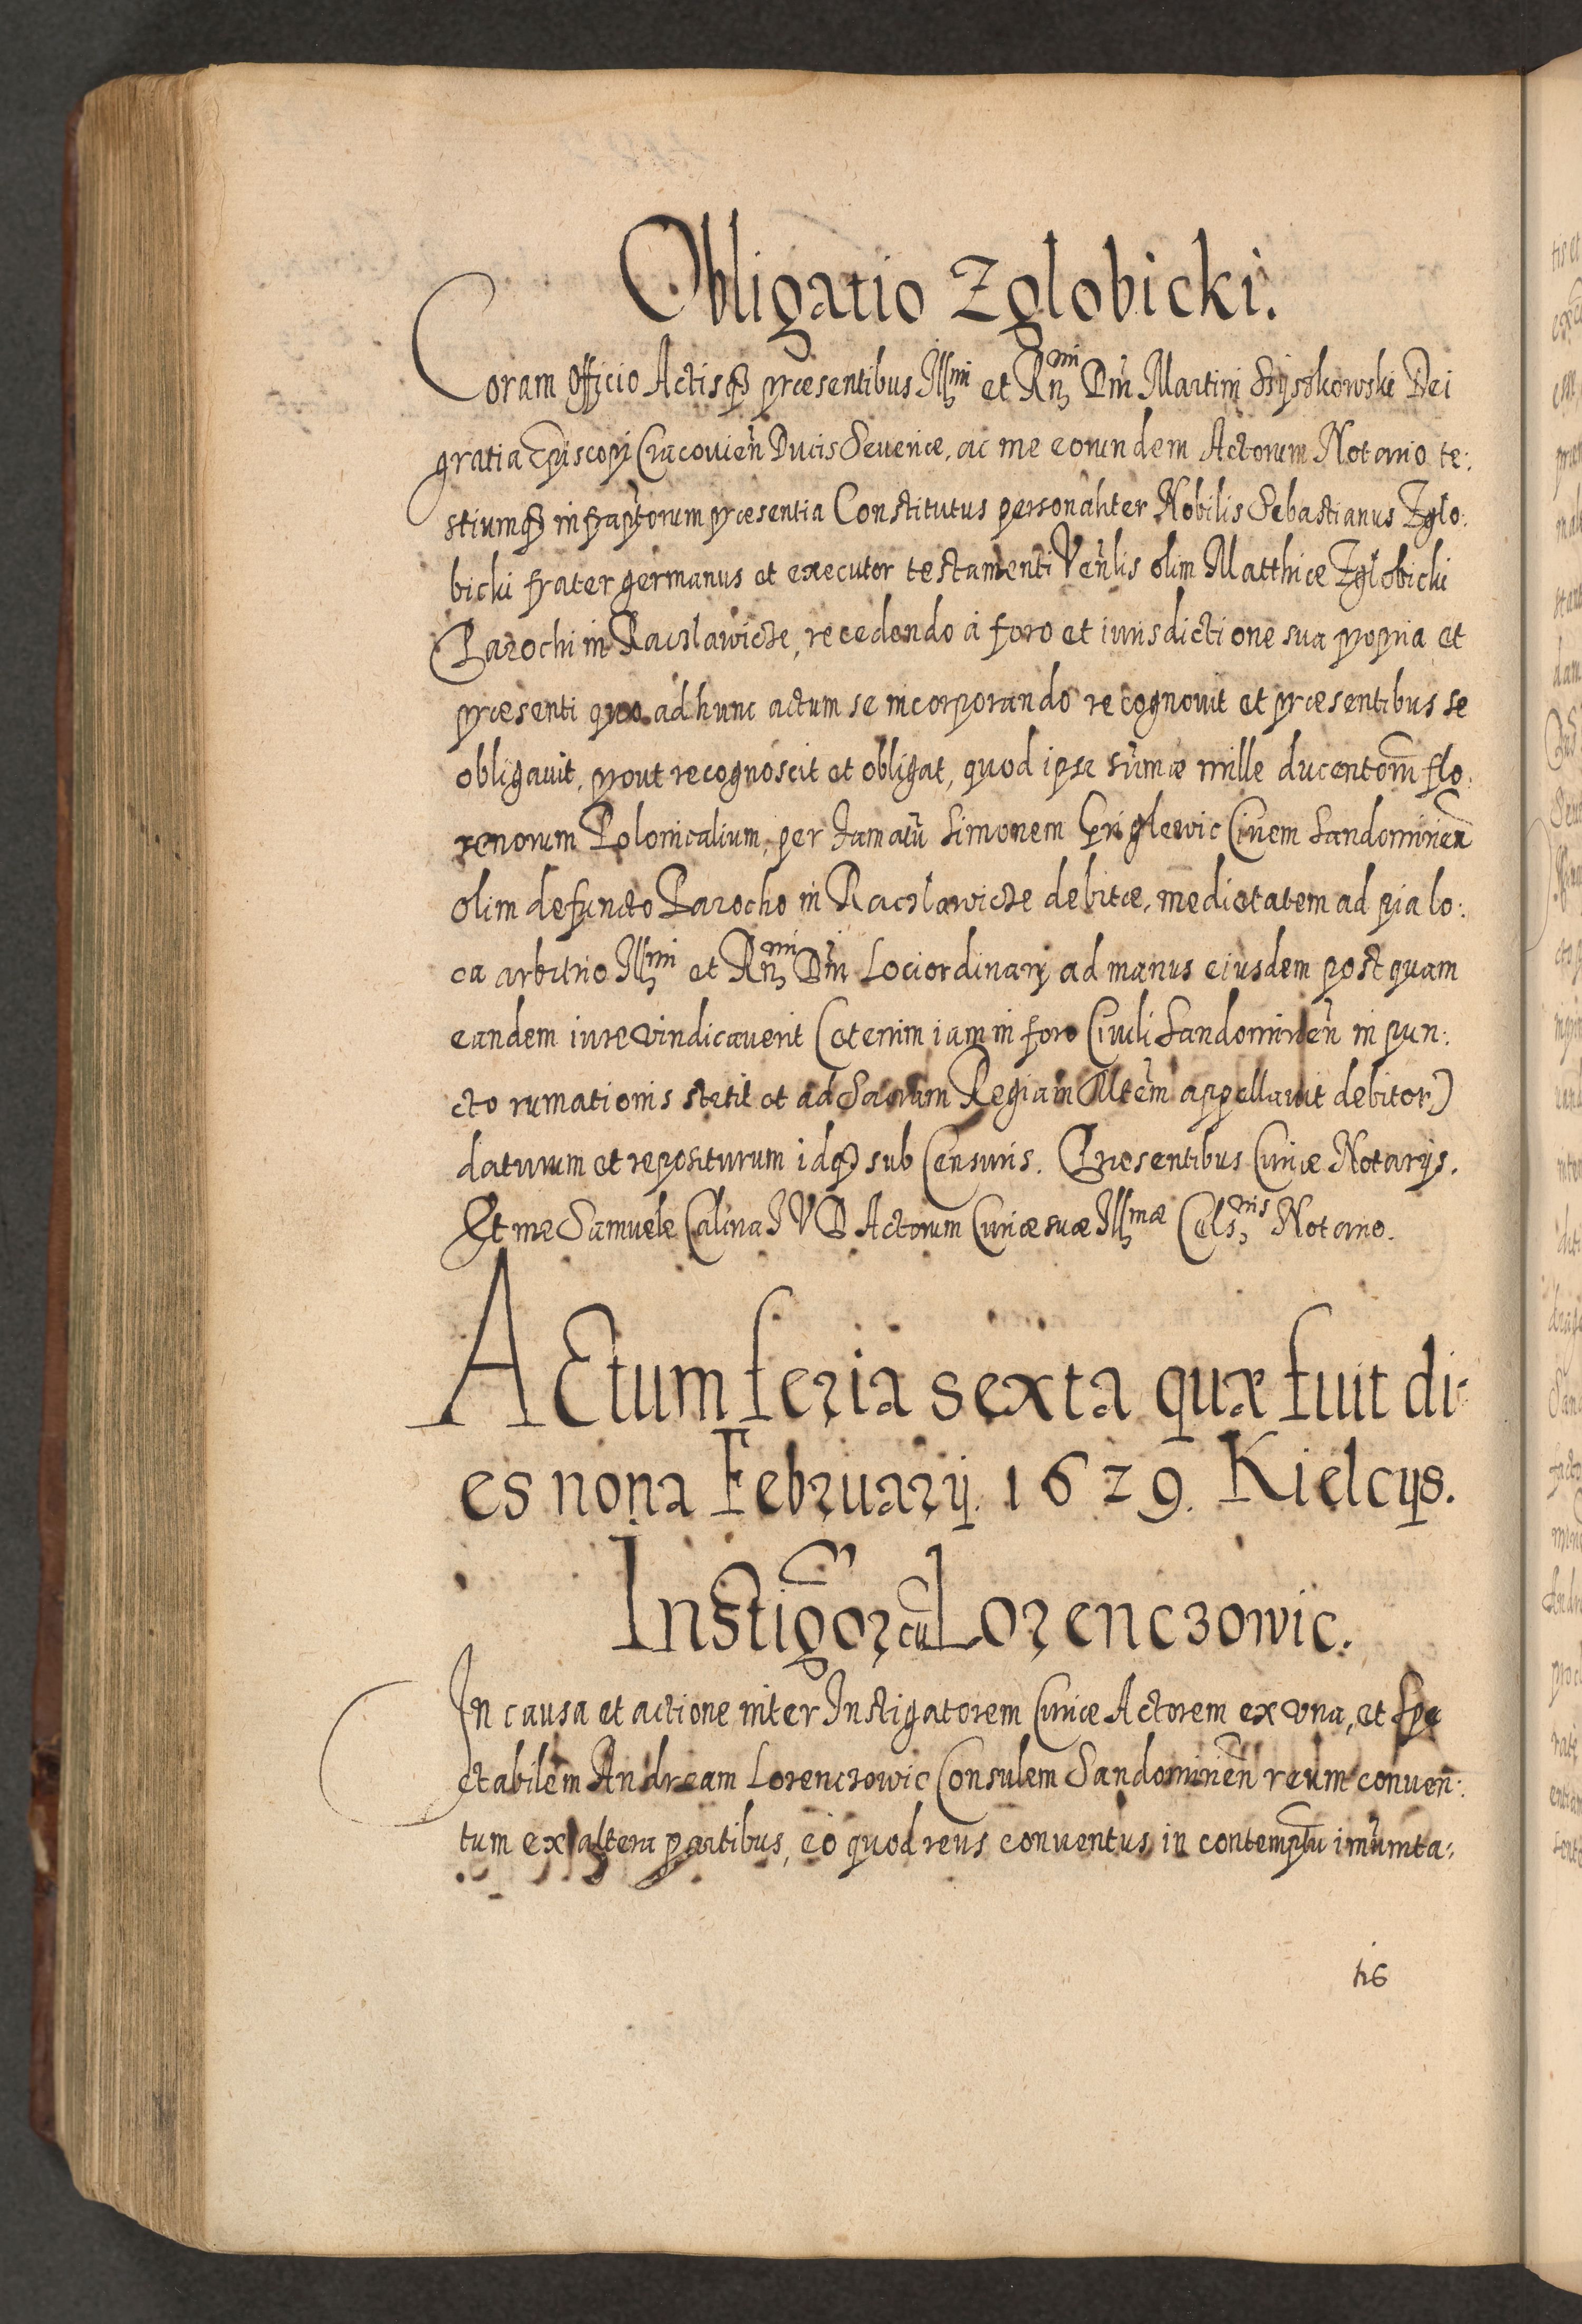 Obligatio Zglobicki.
Coram Officio Actisq₃ præsentibus Illmi et Rñmi Dñi Martini Szyszkowski Dei
gratia Episcopi Cracovień Ducis Severiæ, ac me eorundem Actorum Notario te:
stiumq₃ infraptorum præsentia Constitutus personaliter Nobilis Sebastianus Zglo:
bicki frater germanus et executor testamenti Venlis olim Matthiæ Zglobicki
Parochi in Raczlawicze, recedendo à foro et iurisdictione sua propria et
præsenti quo ad hunc actum se incorporando recognovit et præsentibus se
obligavit, prout recognoscit et obligat, quod ipse sūmæ mille ducentorū flo:
renorum Polonicalium, per Famatū Simonem Griglewic Civem Sandomirień
olim defuncto Parocho in Raczlawicze debitæ, medietatem ad pia lo:
ca arbitrio Illmi et Rñmi Dñi Loci ordinarij ad manus eiusdem postquam
eandem iure vindicaverit (etenim iam in foro Civili Sandomirień in pun:
cto rumationis stetit et ad Sacram Regiam Mtem appellavit debitor)
daturum et repositurum idq₃ sub Censuris. Præsentibus Curiæ Notarijs.
Et me Samuele Calina I V D Actorum Curiæ suæ Illmæ Celsnis Notario.
ACtum feria sexta quæ fuit di-
es nona Februarij. 1629. Kielcijs.
Instigor cū Lorenczowic.
In causa et actione inter Instigatorem Curiæ Actorem ex una, et spe
ctabilem Andream Lorenczowic Consulem Sandomirień reum conven:
tum ex altera partibus, eo quod reus conventus in contemptū imūnita:
tis